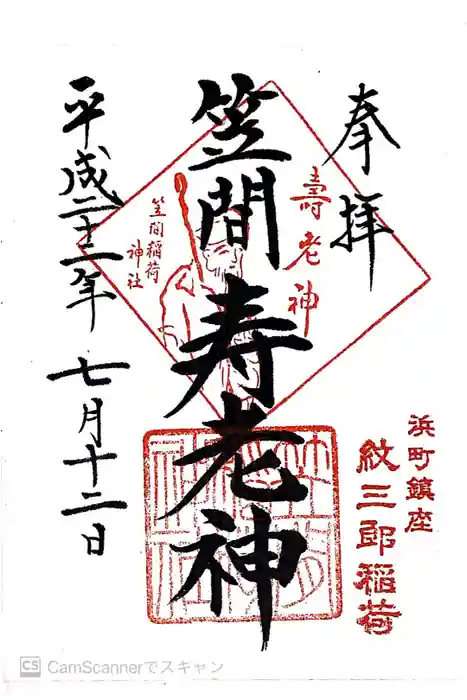 奉拝
壽老神
笠間寿老神
笠間稲荷
神社
平成二十二年 七月十二日
浜町鎮座
紋三郎稲荷
CS CamScannerでスキャン